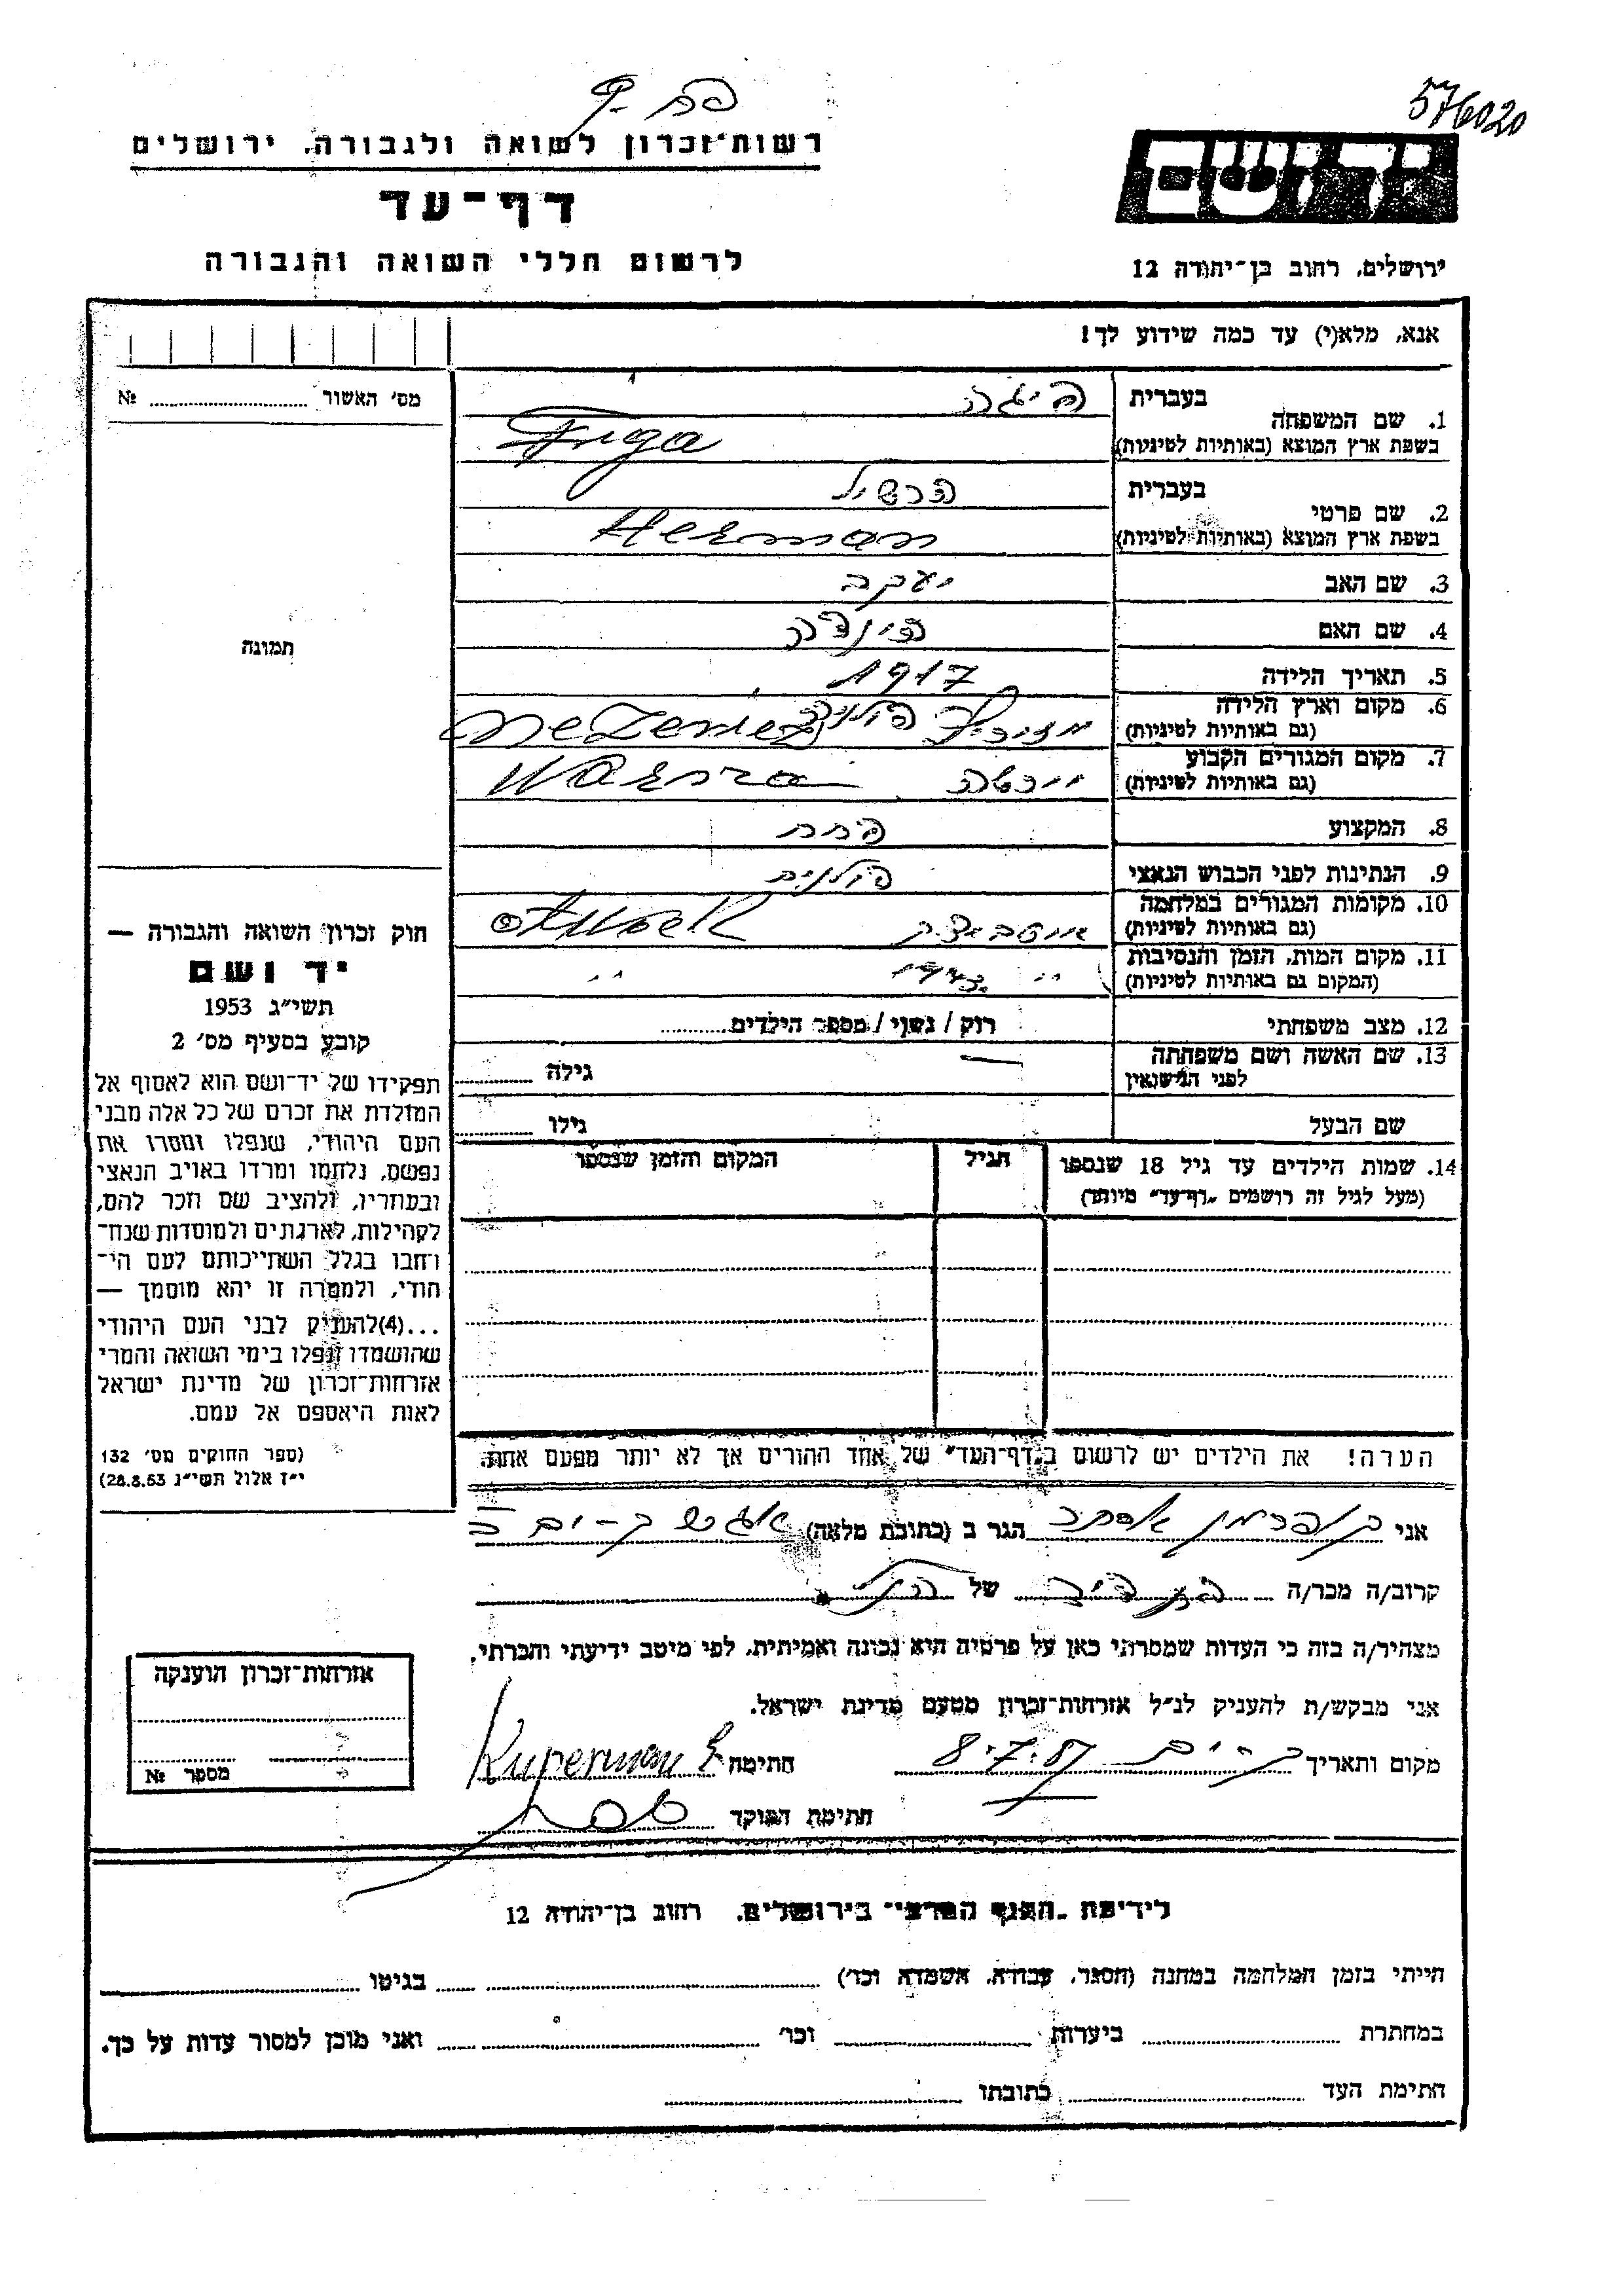 576020
רשות־זכרון לשואה ולגבורה, ירושלים
דף־עד
לרשום חללי השואה והגבורה
ירושלים, רחוב בן־יהודה 12
אנא, מלא(י) עד כמה שידוע לך!
מס׳ האשור № 
1. שם המשפחה
בעברית פיגה
בשפת ארץ המוצא (באותיות לטיניות) Figa
2. שם פרטי
בעברית הרשיל
בשפת ארץ המוצא (באותיות לטיניות) Herman
3. שם האב יעקב
4. שם האם הינדה
תמונה
5. תאריך הלידה 1917
6. מקום וארץ הלידה פולניה
(גם באותיות לטיניות)
7. מקום המגורים הקבוע וורשה Warsza
(גם באותיות לטיניות)
8. המקצוע פחח
9. הנתינות לפני הכבוש הנאצי פולנית
10. מקומות המגורים במלחמה אוטבוצק Otwock
(גם באותיות לטיניות)
11. מקום המות, הזמן והנסיבות " "
(המקום גם באותיות לטיניות)
12. מצב משפחתי רוק / נשוי / מספר הילדים
13. שם האשה ושם משפחתה — גילה
לפני הנישואין
שם הבעל גילו
14. שמות הילדים עד גיל 18 שנספו הגיל המקום והזמן שנספו
(מעל לגיל זה רושמים „דף־עד״ מיוחד)
הערה! את הילדים יש לרשום ב„דף־העד״ של אחד ההורים אך לא יותר מפעם אחת.
חוק זכרון השואה והגבורה —
יד ושם
תשי״ג 1953
קובע בסעיף מס׳ 2
תפקידו של יד־ושם הוא לאסוף אל
המולדת את זכרם של כל אלה מבני
העם היהודי, שנפלו ומסרו את
נפשם, נלחמו ומרדו באויב הנאצי
ובעוזריו, ולהציב שם וזכר להם,
לקהילות, לארגונים ולמוסדות שנח־
רחבו בגלל השתייכותם לעם הי־
הודי, ולמטרה זו יהא מוסמך —
...(4) להעניק לבני העם היהודי
שהושמדו ונפלו בימי השואה והמרי
אזרחות־זכרון של מדינת ישראל
לאות היאספם אל עמם.
(ספר החוקים מס׳ 132
י״ז אלול תשי״ג 28.8.53)
אני קופרמן אסתר הגר ב (כתובת מלאה)
קרוב/ה מכר/ה של
מצהיר/ה בזה כי העדות שמסרתי כאן על פרטיה היא נכונה ואמיתית, לפי מיטב ידיעתי והכרתי.
אני מבקש/ת להעניק לנ״ל אזרחות־זכרון מטעם מדינת ישראל.
מקום ותאריך ק-ים 8.7.87 חתימה Kuperman E
חתימת הפוקד
אזרחות־זכרון הוענקה
מספר №
לידיעת הגנזך המרכזי בירושלים, רחוב בן־יהודה 12
הייתי בזמן המלחמה במחנה (הסגר, עבודה, השמדה וכו׳) בגיטו
במחתרת ביערות וכו׳ ואני מוכן למסור עדות על כך.
חתימת העד כתובתו